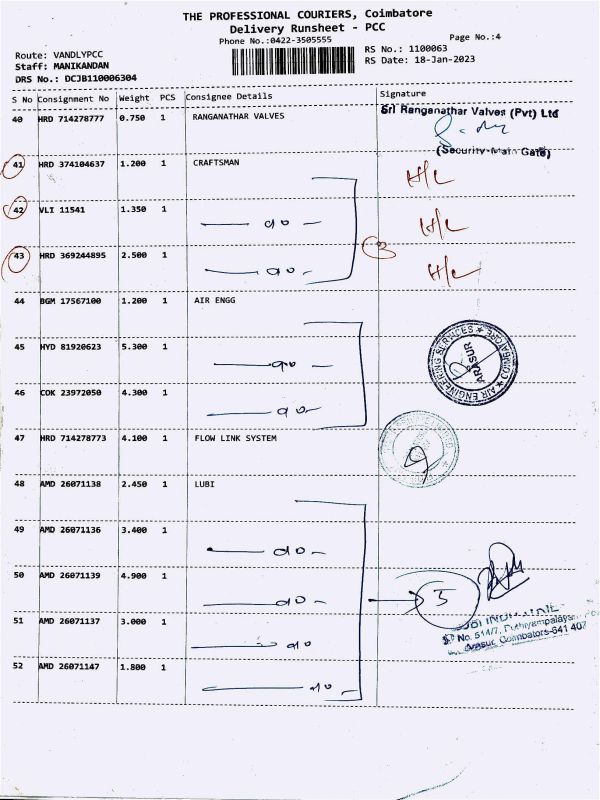 THE PROFESSIONAL COURIERS, Coimbatore
Delivery Runsheet - PCC
Phone No.:0422-3505555
Page No.:4
Route: VANDLYPCC
RS No.: 1100063
Staff: MANIKANDAN
RS Date: 18-Jan-2023
DRS No.: DCJB110006304
S No Consignment No Weight PCS Consignee Details Signature
40 HRD 714278777 0.750 1 RANGANATHAR VALVES Sri Ranganathar Valves (Pvt) Ltd
(Security-Main Gate)
41 HRD 374104637 1.200 1 CRAFTSMAN H/L
42 VLI 11541 1.350 1 do H/L
3
43 HRD 369244895 2.500 1 do H/L
44 BGM 17567100 1.200 1 AIR ENGG
AIR ENGINEERING SERVICES ★ COIMBATORE ★
ARASUR
45 HYD 81920623 5.300 1 do
46 COK 23972050 4.300 1 do
47 HRD 714278773 4.100 1 FLOW LINK SYSTEM
48 AMD 26071138 2.450 1 LUBI
49 AMD 26071136 3.400 1 do
50 AMD 26071139 4.900 1 do 5
51 AMD 26071137 3.000 1 do
No. 514/7,
Arasur, Coimbatore-641 407
52 AMD 26071147 1.800 1 do